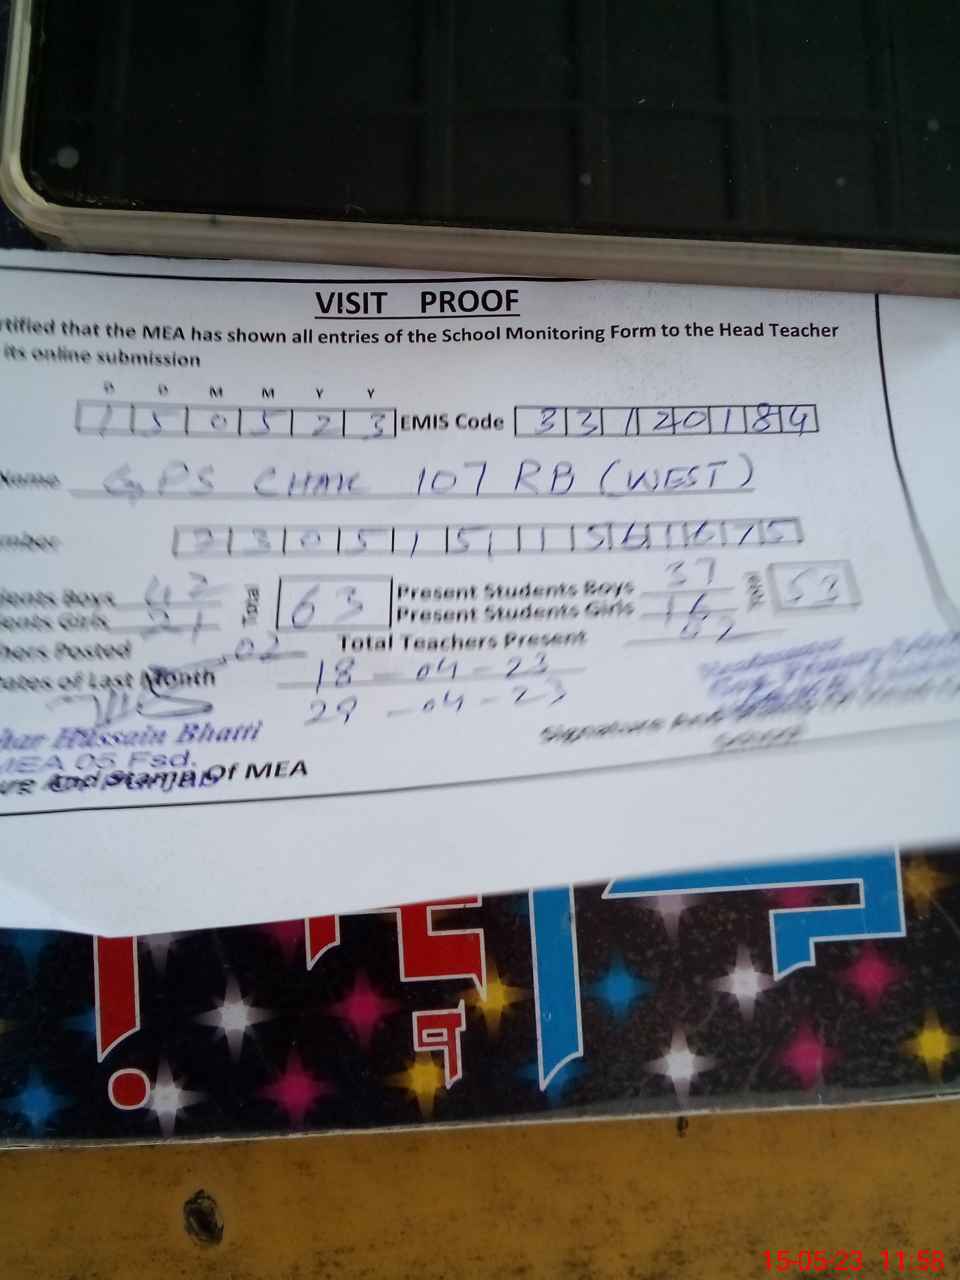 VISIT PROOF
rtified that the MEA has shown all entries of the School Monitoring Form to the Head Teacher
its online submission
D D M M Y Y
1 5 0 5 2 3 EMIS Code 3 3 1 2 0 1 8 4
Name GPS CHAK 107 RB (WEST)
mber
ents Boys 42 Total 63 Present Students Boys 37 Total 53
ents Girls 21 Present Students Girls 16
hers Posted 02 Total Teachers Present 02
ates of Last Month 18 - 04 - 23
29 - 04 - 23
har Hussain Bhatti
MEA 05 Fsd.
And Stamp Of MEA
15-05-23 11:58